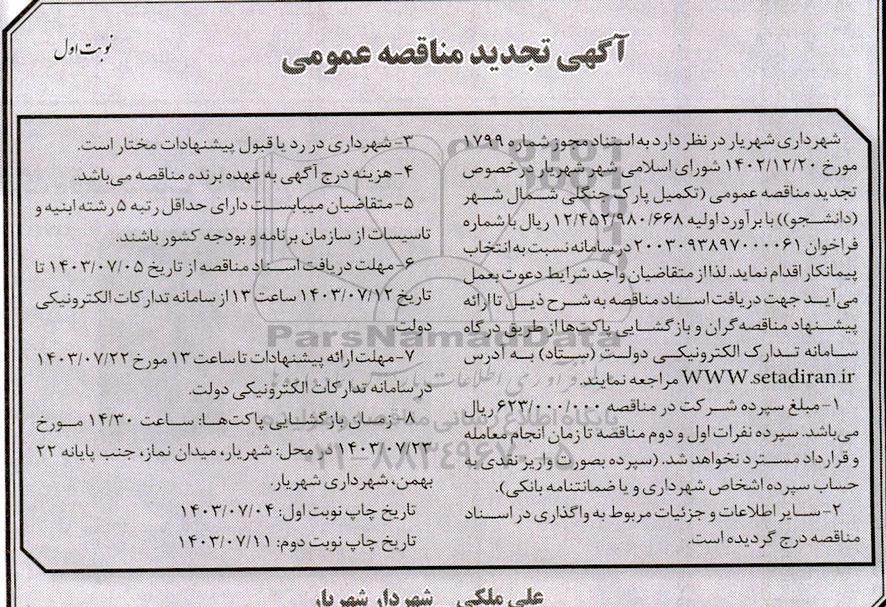 آگهی تجدید مناقصه عمومی
نوبت اول
شهرداری شهریار در نظر دارد به استناد مجوز شماره ۱۷۹۹
مورخ ۱۴۰۲/۱۲/۲۰ شورای اسلامی شهر شهریار در خصوص
تجدید مناقصه عمومی (تکمیل پارک جنگلی شمال شهر
(دانشجو)) با برآورد اولیه ۱۲/۴۵۲/۹۸۰/۶۶۸ ریال با شماره
فراخوان ۲۰۰۳۰۹۳۸۹۷۰۰۰۰۶۱ در سامانه نسبت به انتخاب
پیمانکار اقدام نماید. لذا از متقاضیان واجد شرایط دعوت بعمل
می‌آید جهت دریافت اسناد مناقصه به شرح ذیل تا ارائه
پیشنهاد مناقصه‌گران و بازگشایی پاکت‌ها از طریق درگاه
سامانه تدارک الکترونیکی دولت (ستاد) به آدرس
WWW.setadiran.ir مراجعه نمایند.
۱- مبلغ سپرده شرکت در مناقصه ۶۲۳/۰۰۰/۰۰۰ ریال
می‌باشد. سپرده نفرات اول و دوم مناقصه تا زمان انجام معامله
و قرارداد مسترد نخواهد شد. (سپرده بصورت واریز نقدی به
حساب سپرده اشخاص شهرداری و یا ضمانتنامه بانکی).
۲- سایر اطلاعات و جزئیات مربوط به واگذاری در اسناد
مناقصه درج گردیده است.
۳- شهرداری در رد یا قبول پیشنهادات مختار است.
۴- هزینه درج آگهی به عهده برنده مناقصه می‌باشد.
۵- متقاضیان میبایست دارای حداقل رتبه ۵ رشته ابنیه و
تاسیسات از سازمان برنامه و بودجه کشور باشند.
۶- مهلت دریافت اسناد مناقصه از تاریخ ۱۴۰۳/۰۷/۰۵ تا
تاریخ ۱۴۰۳/۰۷/۱۲ ساعت ۱۳ از سامانه تدارکات الکترونیکی
دولت.
۷- مهلت ارائه پیشنهادات تا ساعت ۱۳ مورخ ۱۴۰۳/۰۷/۲۲
در سامانه تدارکات الکترونیکی دولت.
۸- زمان بازگشایی پاکت‌ها: ساعت ۱۴/۳۰ مورخ
۱۴۰۳/۰۷/۲۳ در محل: شهریار، میدان نماز، جنب پایانه ۲۲
بهمن، شهرداری شهریار.
تاریخ چاپ نوبت اول: ۱۴۰۳/۰۷/۰۴
تاریخ چاپ نوبت دوم: ۱۴۰۳/۰۷/۱۱
علی ملکی شهردار شهریار
ParsNamadData
پایگاه اطلاع رسانی مناقصه و مزایده
۰۲۱-۸۸۳۴۹۶۷۰-۵